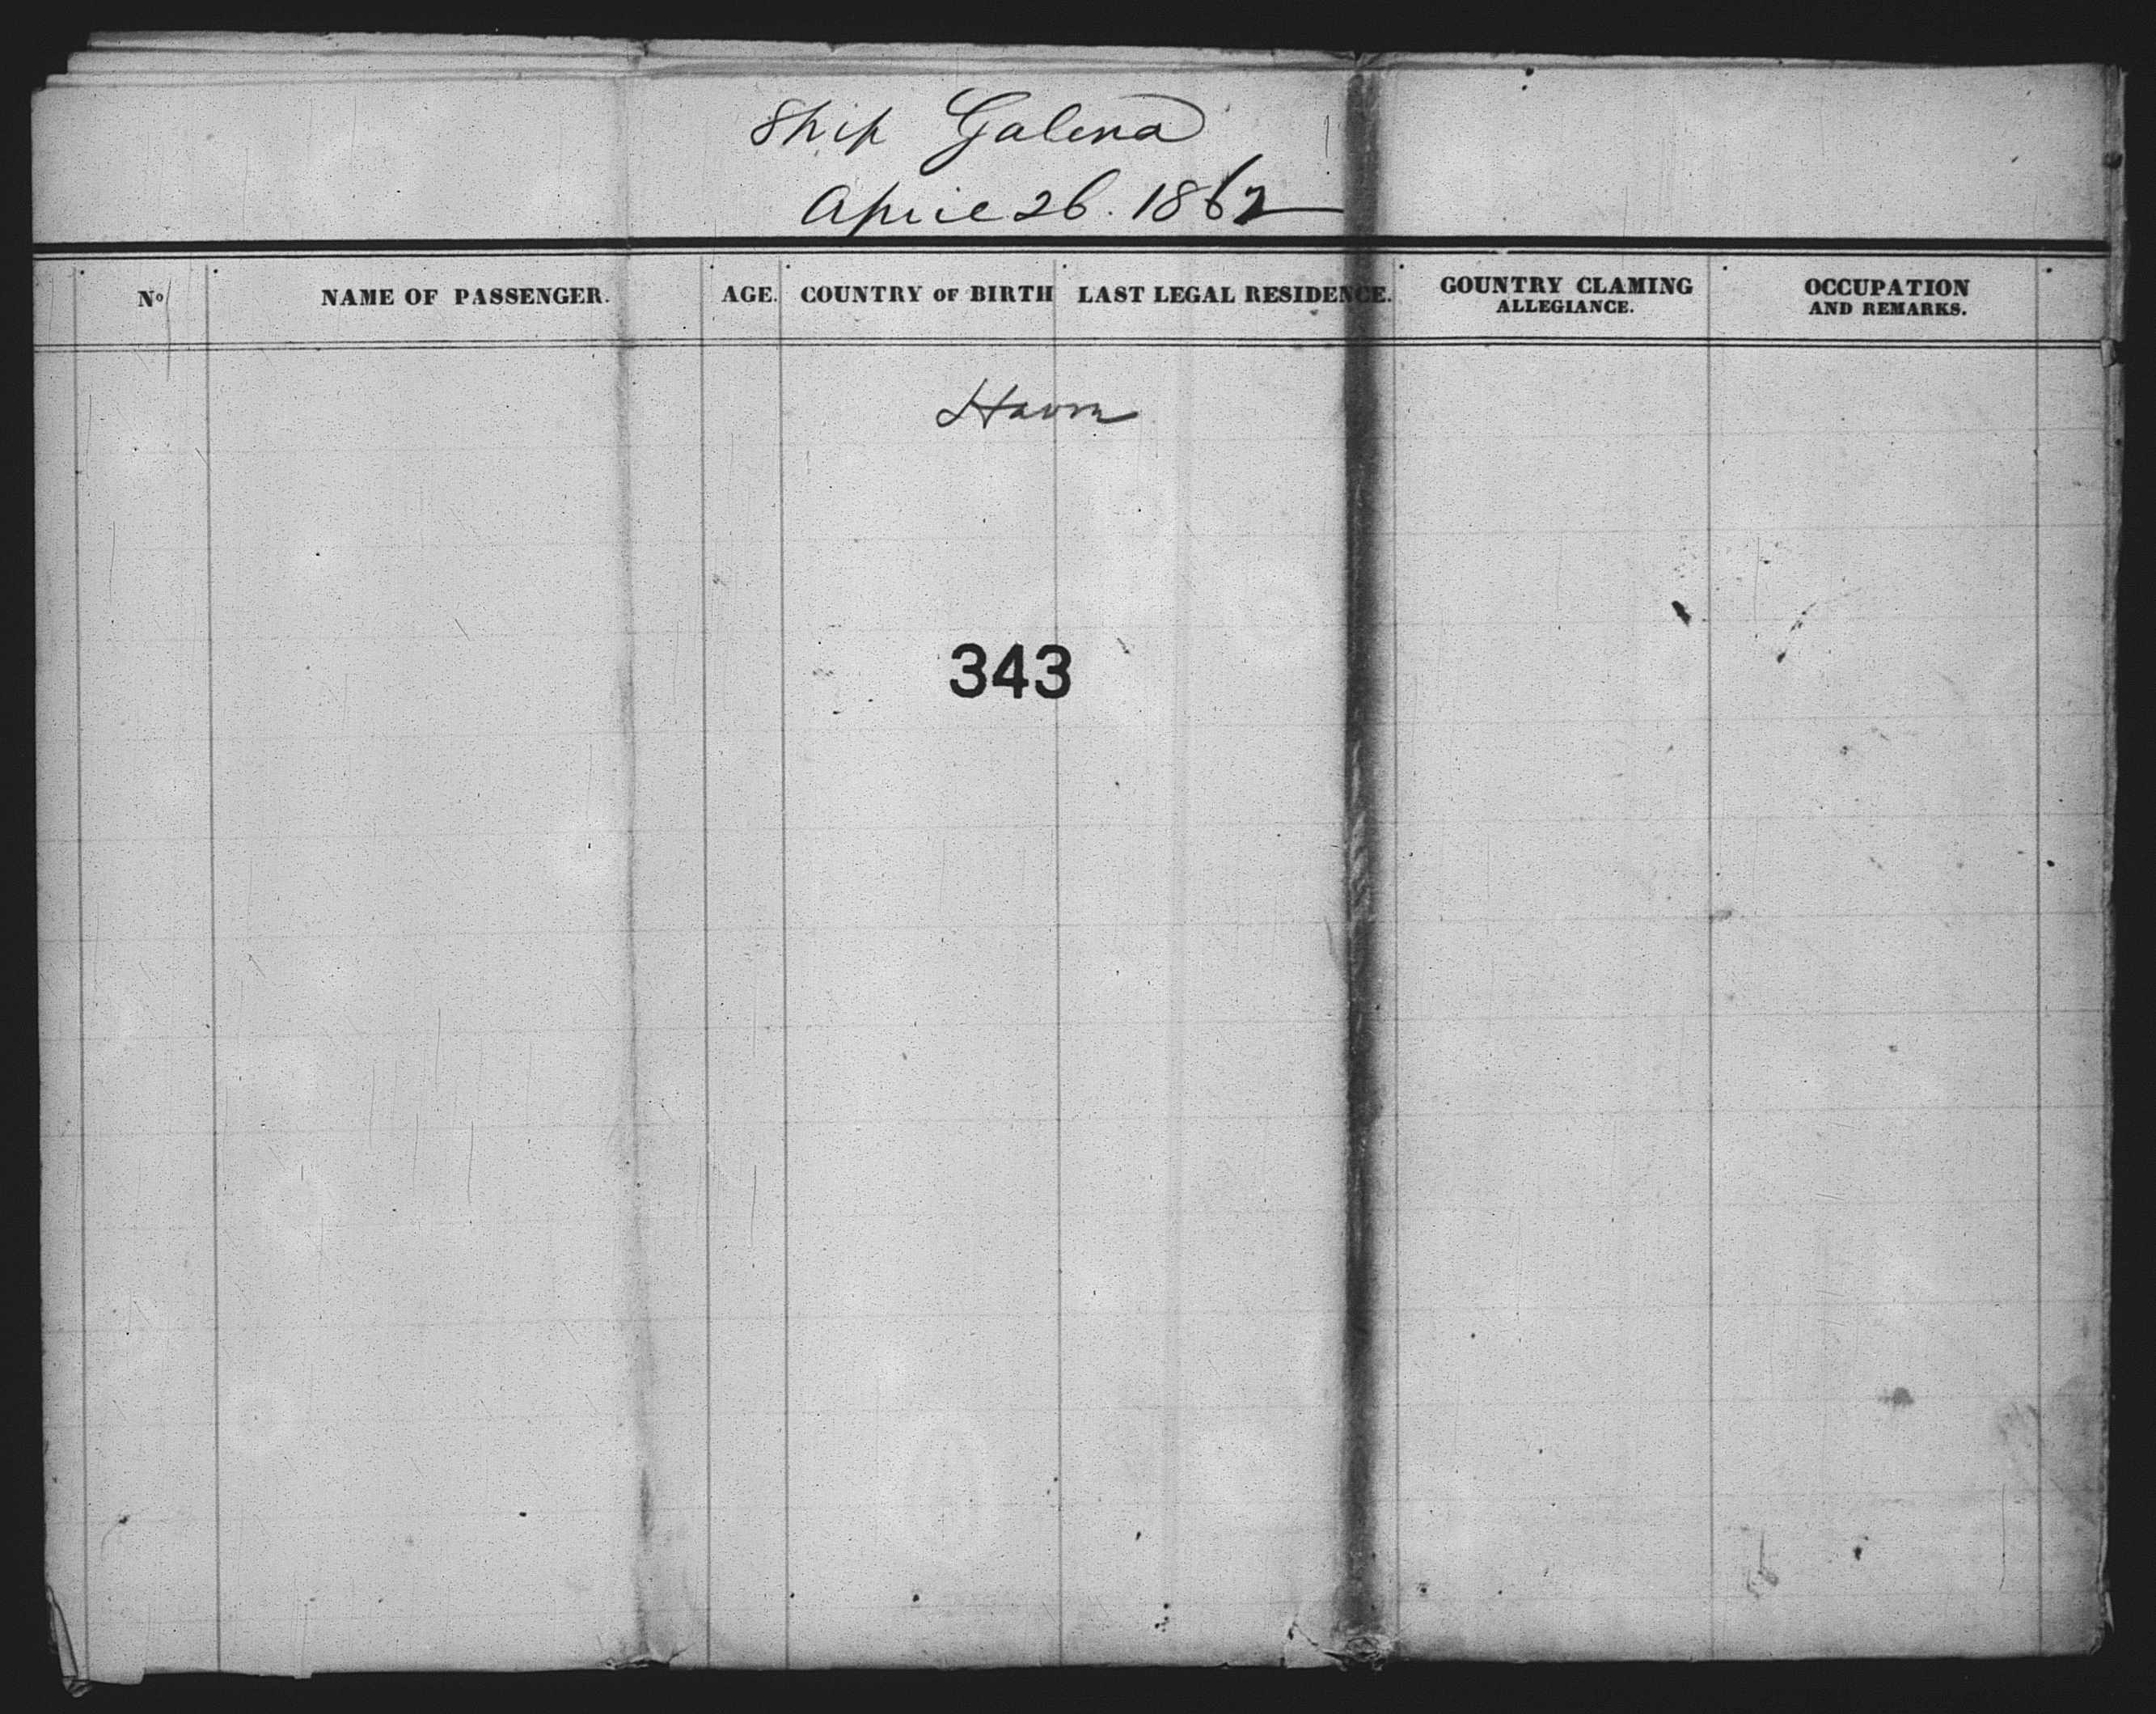 Ship Galena
April 26. 1862
No NAME OF PASSENGER. AGE. COUNTRY OF BIRTH LAST LEGAL RESIDENCE. GOUNTRY CLAMING ALLEGIANCE. OCCUPATION AND REMARKS.
Havre
343